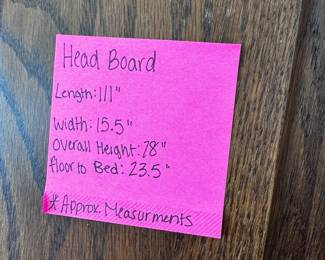 Head Board
Length: 111"
Width: 15.5"
Overall Height: 78"
floor to Bed: 23.5"
* Approx Measurments